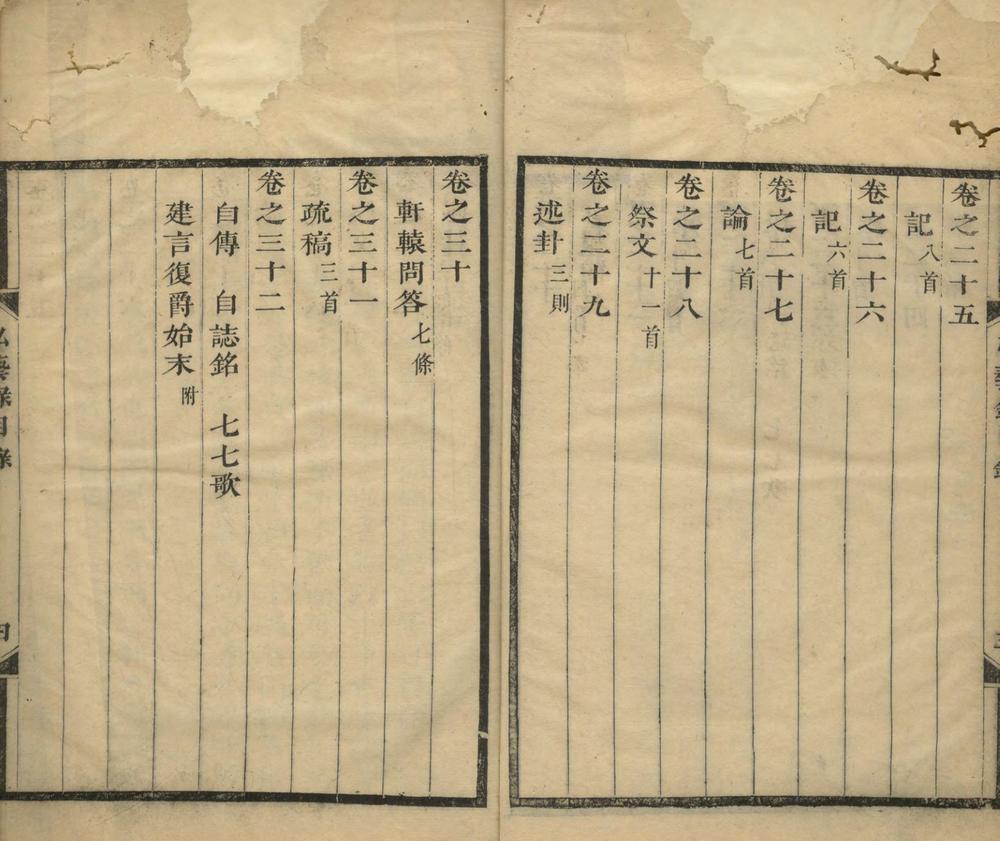 卷之二十五
記 八首
卷之二十六
記 六首
卷之二十七
論 七首
卷之二十八
祭文 十一首
卷之二十九
述卦 三則
卷之三十
軒轅問答 七條
卷之三十一
疏稿 三首
卷之三十二
自傳 自誌銘 七七歌
建言復爵始末 附
藝錄目錄